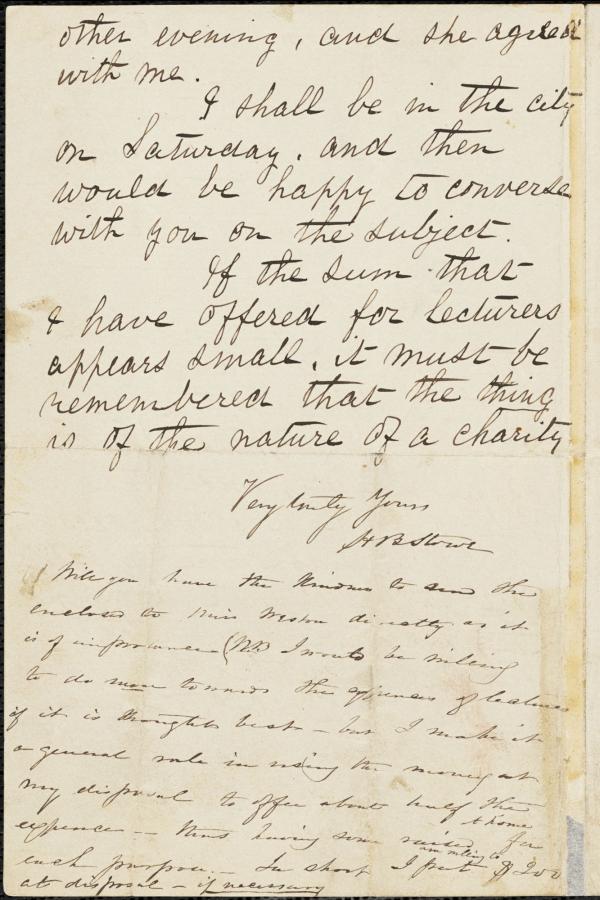 other evening, and she agreed
with me.
I shall be in the city
on Saturday, and then
would be happy to converse
with you on the subject.
If the sum that
I have offered for lecturers
appears small, it must be
remembered that the thing
is of the nature of a charity
Very truly Yours
H B Stowe
Will you have the kindness to send the
enclosed to Miss Weston directly as it
is of importance (NB I would be willing
to do more towards the expenses of lectures
if it is thought best – but I make it
a general rule in using the money at
my disposal to offer about half the
expence – thus having some raised
at home
for
each purpose – In short I
am willing to
put $200
at disposal – if necessary